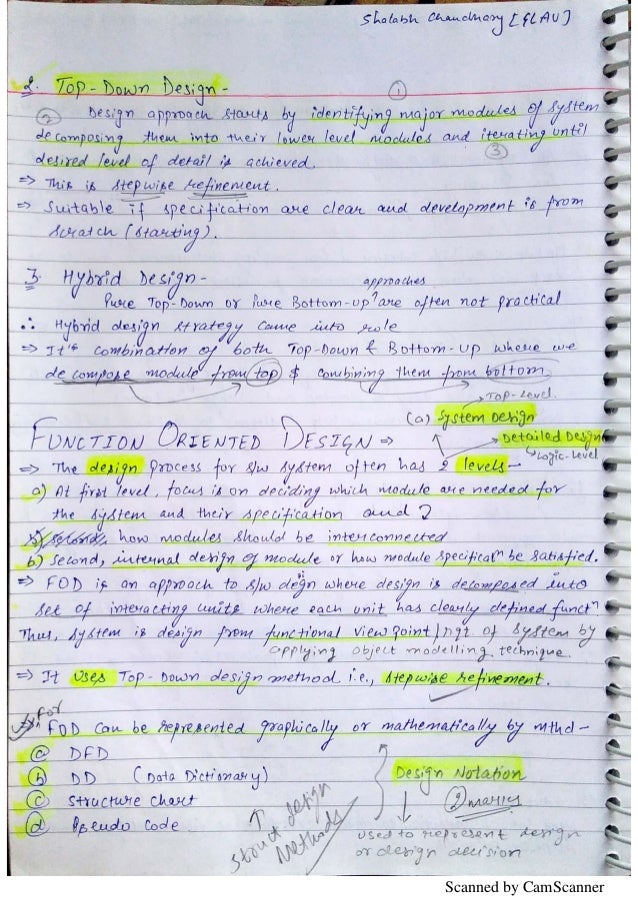 Shalabh Chaudhary [GLAU]
2. Top-Down Design -
① 
② Design approach starts by identifying major modules of system
decomposing them into their lower level modules and iterating until
③
desired level of detail is achieved.
⇒ This is stepwise refinement.
⇒ Suitable if specification are clear and development is from
scratch (starting).
3. Hybrid Design -
approaches
Pure Top-Down or Pure Bottom-up are often not practical
∴ Hybrid design strategy came into role
⇒ It's combination of both Top-Down & Bottom-up where we
decompose module from top & combining them from bottom
→ Top-Level.
(a) System Design
FUNCTION ORIENTED DESIGN ⇒
→ Detailed Design
↳ Logic-Level
⇒ The design process for s/w system often has 2 levels -
a) At first level, focus is on deciding which module are needed for
the system and their specification and
b) second, how modules should be interconnected
b) Second, internal design of module or how module specificatn be satisfied.
⇒ FOD is an approach to s/w degn where design is decomposed into
set of interacting units where each unit has clearly defined functn
Thus, system is design from functional view point / of system by
applying object modelling technique.
⇒ It uses Top-Down design method i.e., stepwise refinement.
for
⇒ FOD can be represented graphically or mathematically by mthd -
(a) DFD
(b) DD (Data Dictionary)
Design Notation
(c) Structure chart
2 marks
(d) Pseudo code
↑
struct design
Methods
used to represent design
or design decision
Scanned by CamScanner